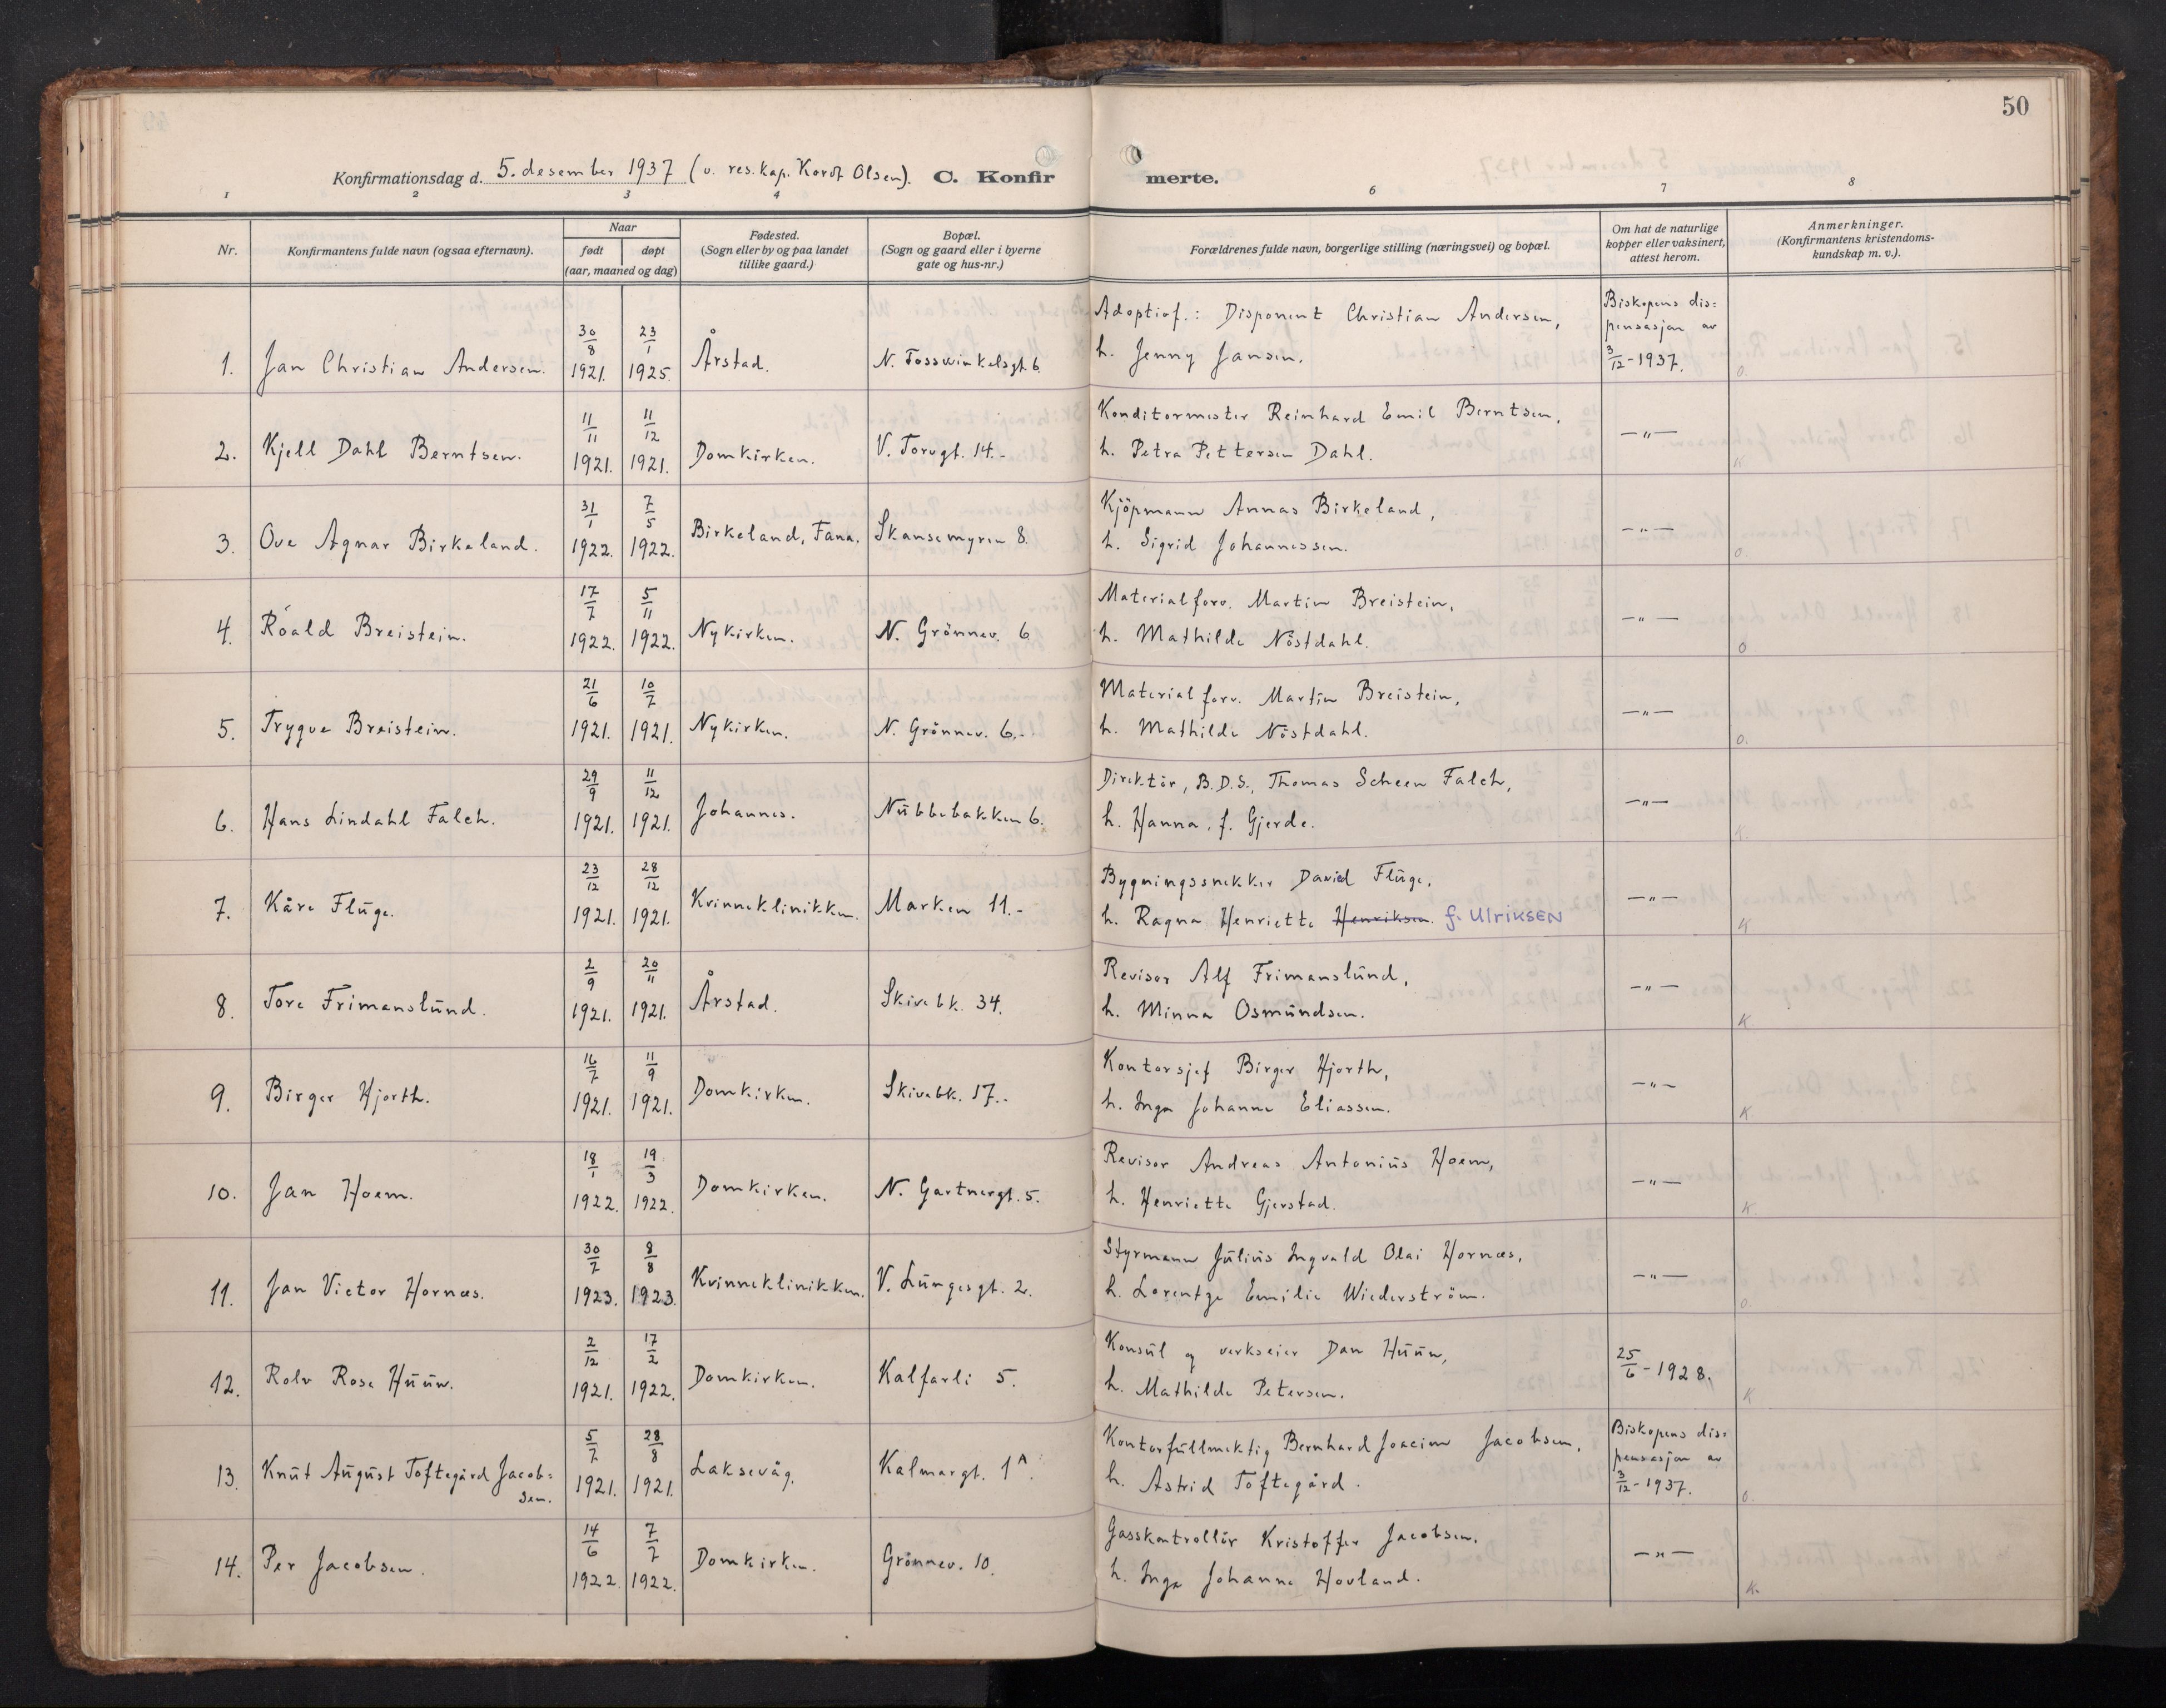 50
Konfirmationsdag d. 5. desember 1937 (v. res. kap. Kordt Olsen). C. Konfirmerte.
1 2 3 4 6 7 8
Nr.
Konfirmantens fulde navn (ogsaa efternavn).
Naar
født døpt
(aar, maaned og dag)
Fødested.
(Sogn eller by og paa landet
tillike gaard.)
Bopæl.
(Sogn og gaard eller i byerne
gate og hus-nr.)
Forældrenes fulde navn, borgerlige stilling (næringsvei) og bopæl.
Om hat de naturlige
kopper eller vaksinert,
attest herom.
Anmerkninger.
(Konfirmantens kristendoms-
kundskap m. v.).
1. Jan Christian Andersen. 30/8 1921. 23/1 1925. Årstad. N. Fosswinkelsgt. 6.
Adoptivf.: Disponent Christian Andersen,
h. Jenny Jansen.
Biskopens dis=
pensasjon av
3/12 - 1937.
O.
2. Kjell Dahl Berntsen. 11/11 1921. 11/12 1921. Domkirken. V. Torvgt. 14.-
Konditormester Reinhard Emil Berntsen,
h. Petra Pettersen Dahl.
—"—
K
3. Ove Agnar Birkeland. 31/1 1922. 7/5 1922. Birkeland, Fana. Skansemyren 8.
Kjöpmann Annas Birkeland,
h. Sigrid Johannessen.
—"—
O.
4. Roald Breistein. 17/7 1922. 5/11 1922. Nykirken. N. Grönnev. 6
Materialforv. Martin Breistein,
h. Mathilde Nöstdahl.
—"—
O
5. Trygve Breistein. 21/6 1921. 10/7 1921. Nykirken. N. Grönnev. 6.-
Materialforv. Martin Breistein,
h. Mathilde Nöstdahl.
—"—
O.
6. Hans Lindahl Falch. 29/9 1921. 11/12 1921. Johannes. Nubbebakken 6.
Direktör, B.D.S., Thomas Scheen Falch,
h. Hanna, f. Gjerde.
—"—
K.
7. Kåre Fluge. 23/12 1921. 28/12 1921. Kvinneklinikken. Marken 11.-
Bygningssnekker David Fluge,
h. Ragna Henriette Henriksen. f. Ulriksen
—"—
K
8. Tore Frimanslund. 2/9 1921. 20/11 1921. Årstad. Skivebk. 34.
Revisor Alf Frimanslund,
h. Minna Osmundsen.
—"—
K
9. Birger Hjorth. 16/7 1921. 11/9 1921. Domkirken. Skivebk. 17.-
Kontorsjef Birger Hjorth,
h. Inga Johanne Eliassen.
—"—
K
10. Jan Hoem. 18/1 1922. 19/3 1922. Domkirken. N. Gartnergt. 5.
Revisor Andreas Antonius Hoem,
h. Henriette Gjerstad.
—"—
K.
11. Jan Victor Hornæs. 30/7 1923. 8/8 1923. Kvinneklinikken. V. Lungesgt. 2.
Styrmann Julius Ingvald Olai Hornæs,
h. Lorentze Emilie Wiederström.
—"—
O.
12. Rolv Rose Huun. 2/12 1921. 17/2 1922. Domkirken. Kalfarli 5.
Konsul og verkseier Dan Huun,
h. Mathilde Petersen.
25/6 - 1928.
K
13. Knut August Toftegård Jacob=
sen. 5/7 1921. 28/8 1921. Laksevåg. Kalmargt. 1A.
Kontorfullmektig Bernhard Joacim Jacobsen,
h. Astrid Toftegård.
Biskopens dis=
pensasjon av
3/12 - 1937.
O.
14. Per Jacobsen. 14/6 1922. 7/7 1922. Domkirken. Grönnev. 10.
Gasskontrollör Kristoffer Jacobsen,
h. Inga Johanne Hovland.
—"—
K.